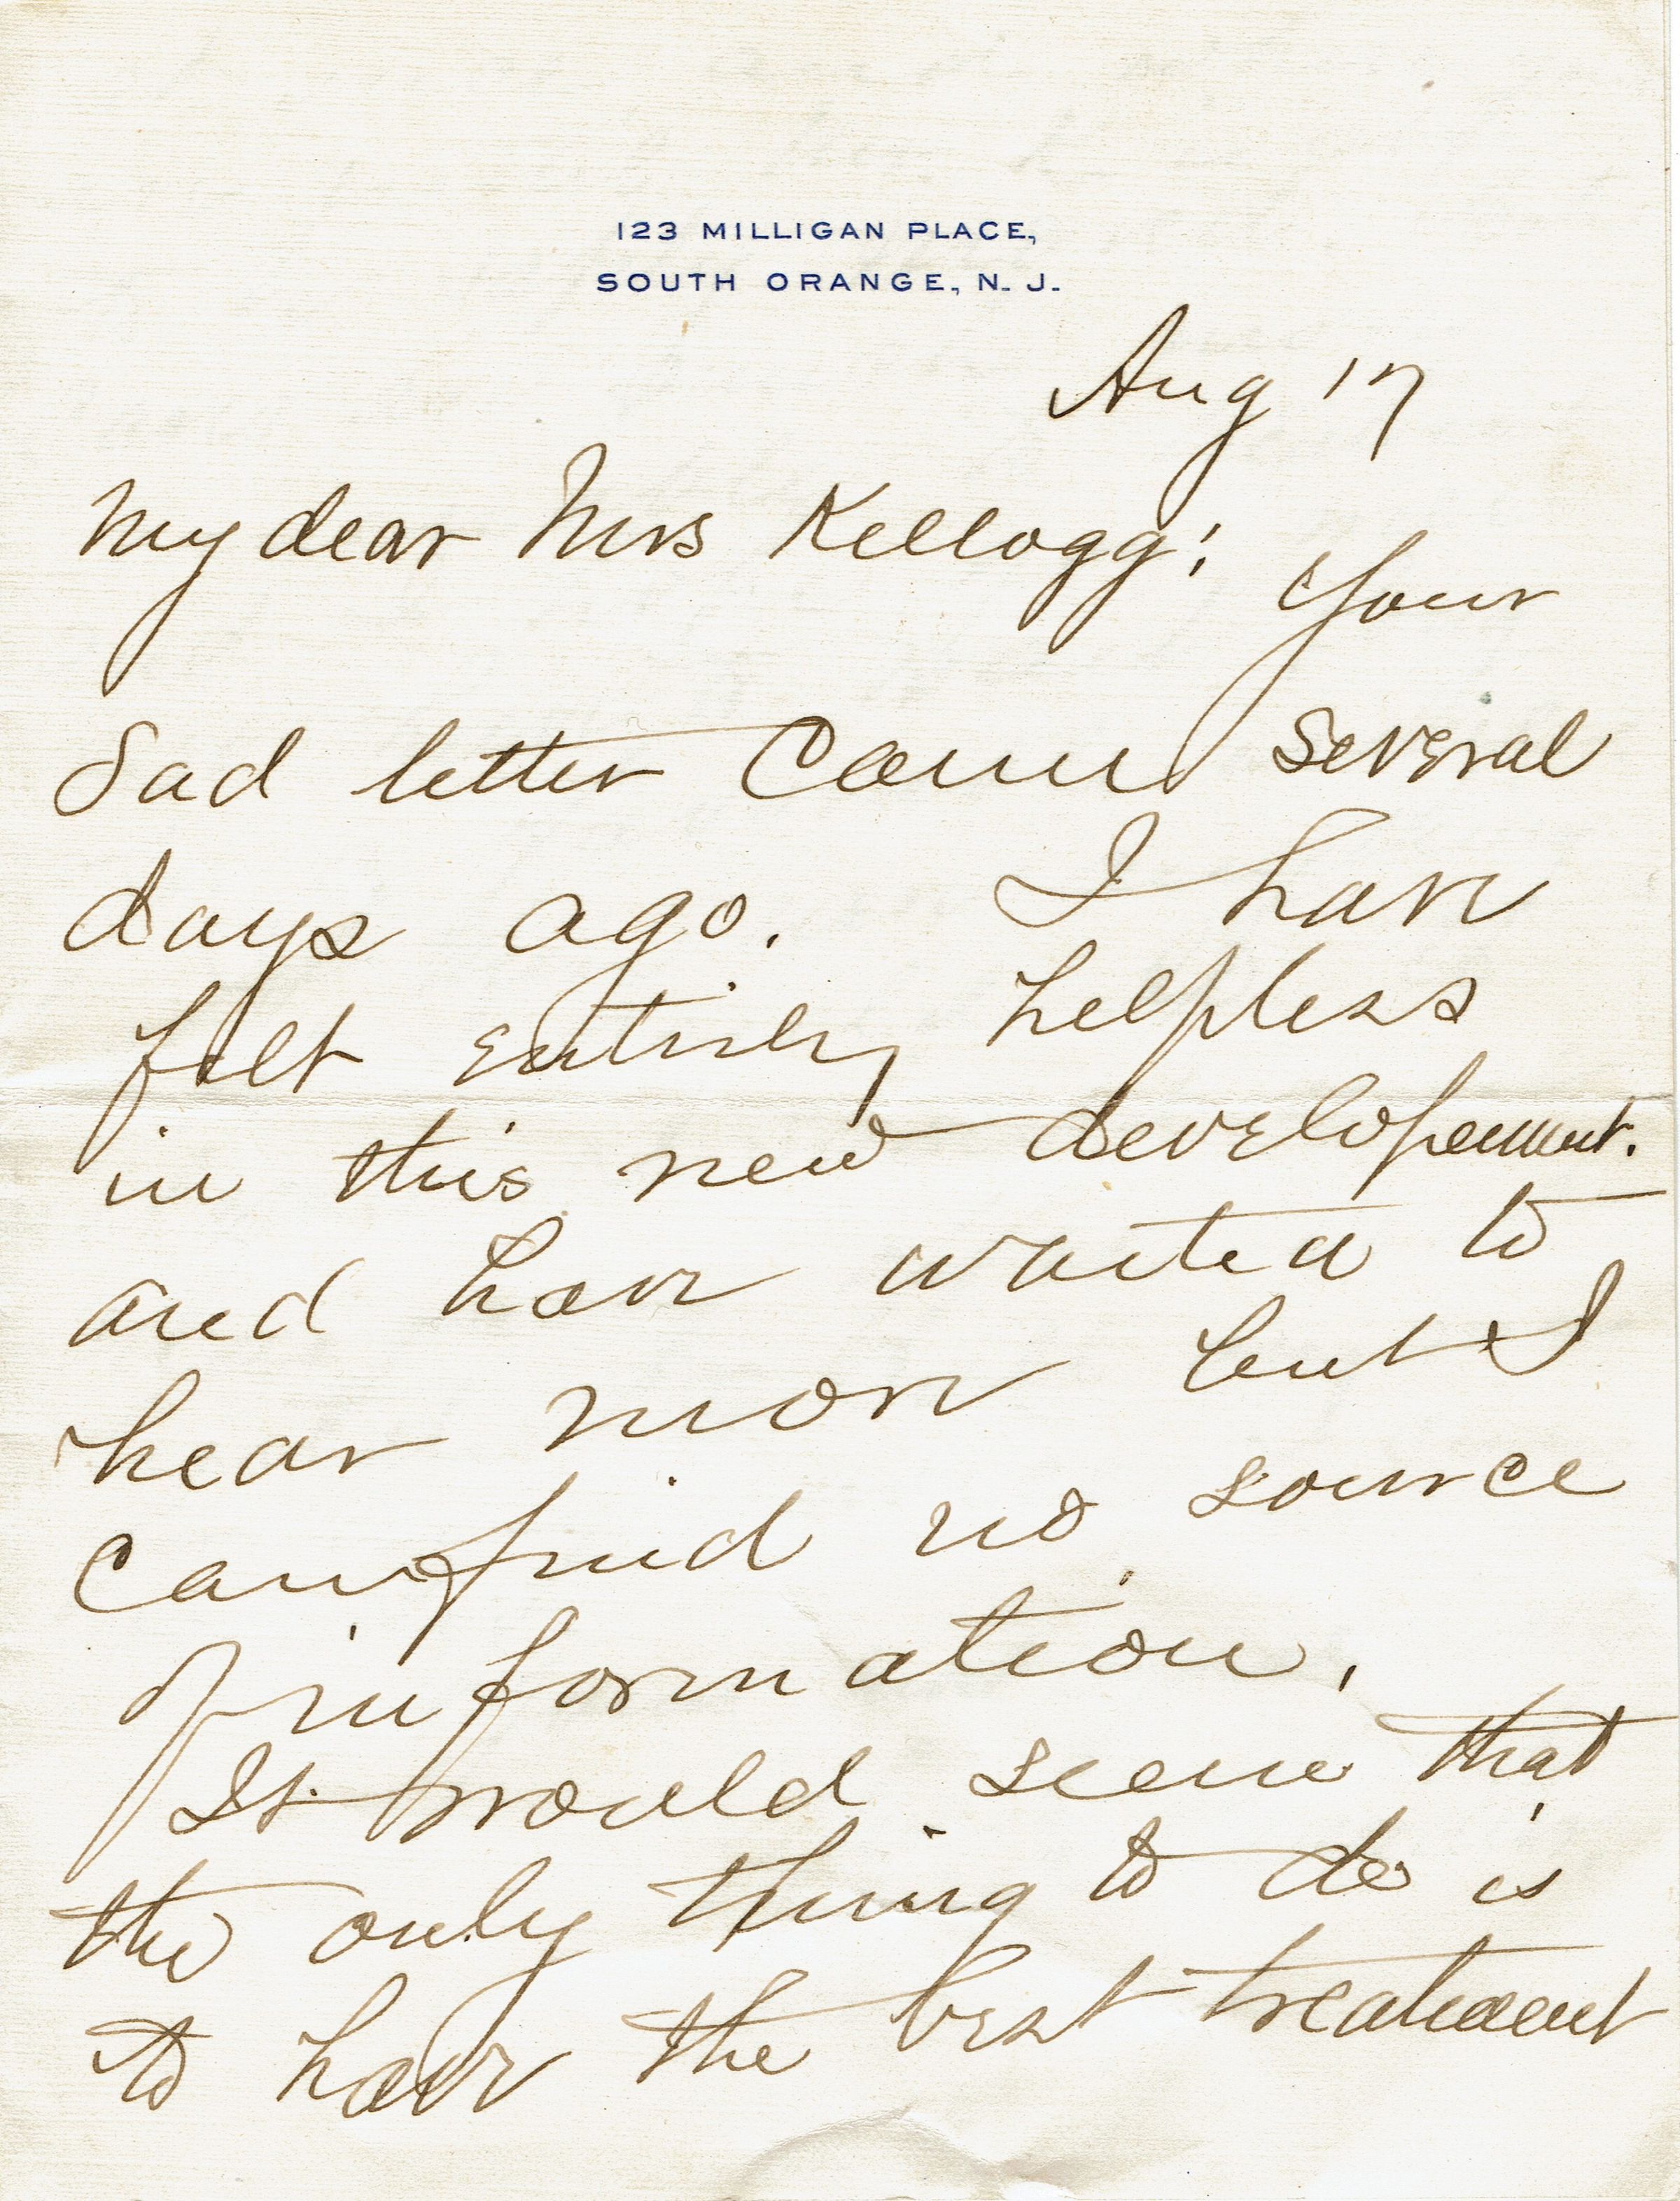 123 MILLIGAN PLACE,
SOUTH ORANGE, N. J.
Aug 17
My dear Mrs Kellogg:
Your
sad letter came several
days ago. I have
felt entirely helpless
in this new developement.
and have waited to
hear more but I
can find no source
of information.
It would seem that
the only thing to do is
to have the best treatment